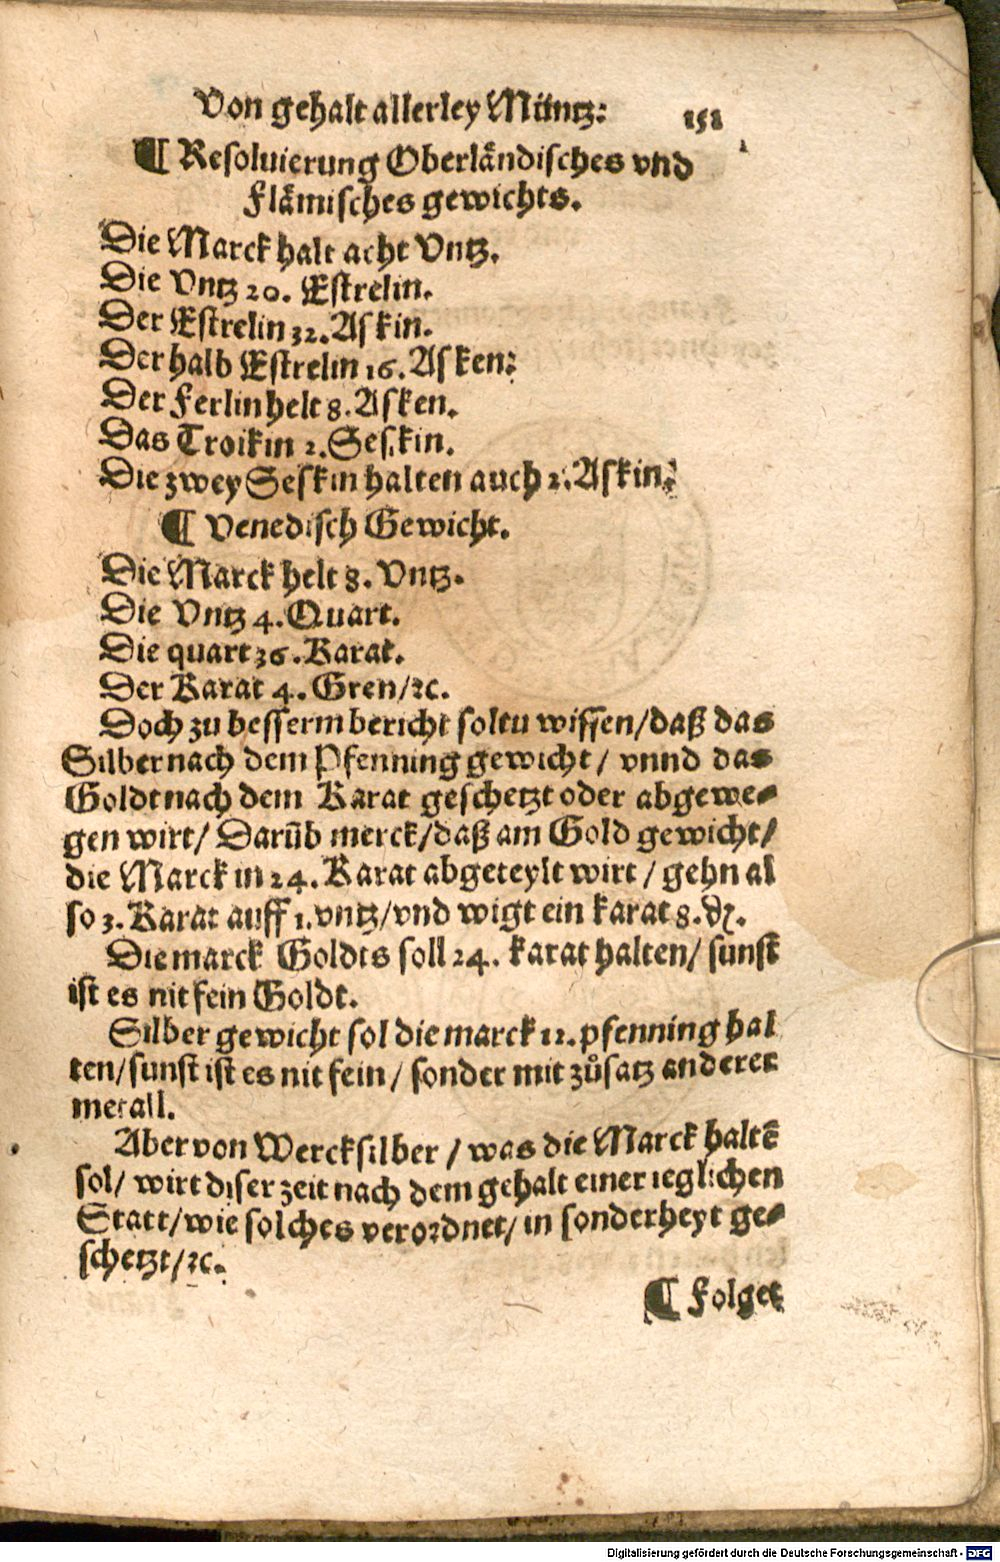 Von gehalt allerley Müntz: 151
¶ Resoluierung Oberlåndisches vnd
Flåmisches gewichts.
Die Marck halt acht Vntz.
Die Vntz 20. Estrelin.
Der Estrelin 32. Askin.
Der halb Estrelin 16. Asken:
Der Ferlin helt 8. Asken.
Das Troikin 2. Seskin.
Die zwey Seskin halten auch 2. Askin.
¶ Venedisch Gewicht.
Die Marck helt 8. Vntz.
Die Vntz 4. Quart.
Die quart 36. Karat.
Der Karat 4. Gren/ꝛc.
Doch zu besserm bericht soltu wissen/daß das
Silber nach dem Pfenning gewicht/ vnnd das
Goldt nach dem Karat geschetzt oder abgewe-
gen wirt/ Darüb merck/daß am Gold gewicht/
die Marck in 24. Karat abgeteylt wirt/ gehn al
so 3. Karat auff 1. vntz/vnd wigt ein karat 8. ₰.
Die marck Goldts soll 24. karat halten/ sunst
ist es nit fein Goldt.
Silber gewicht sol die marck 12. pfenning hal
ten/sunst ist es nit fein/ sonder mit zůsatz anderer
metall.
Aber von Wercksilber/ was die Marck haltẽ
sol/ wirt diser zeit nach dem gehalt einer ieglichen
Statt/wie solches verordnet/ in sonderheyt ge-
schetzt/ꝛc.
¶ Folget
Digitalisierung gefördert durch die Deutsche Forschungsgemeinschaft - DFG